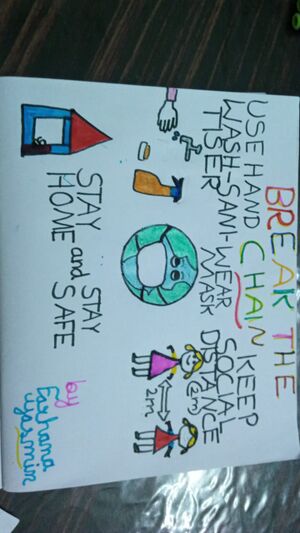 BREAK THE
CHAIN
USE HAND
WASH-SANI-
TISER
WEAR
MASK
KEEP
SOCIAL
DISTANCE
(2m)
2m
STAY
HOME
and
STAY
SAFE
by
Farhana
Yasmin